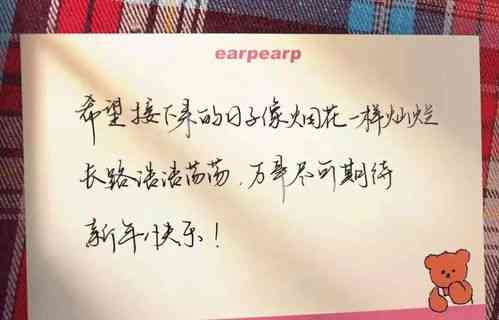 earpearp
希望接下来的日子像烟花一样灿烂
长路浩浩荡荡，万事尽可期待
新年快乐！